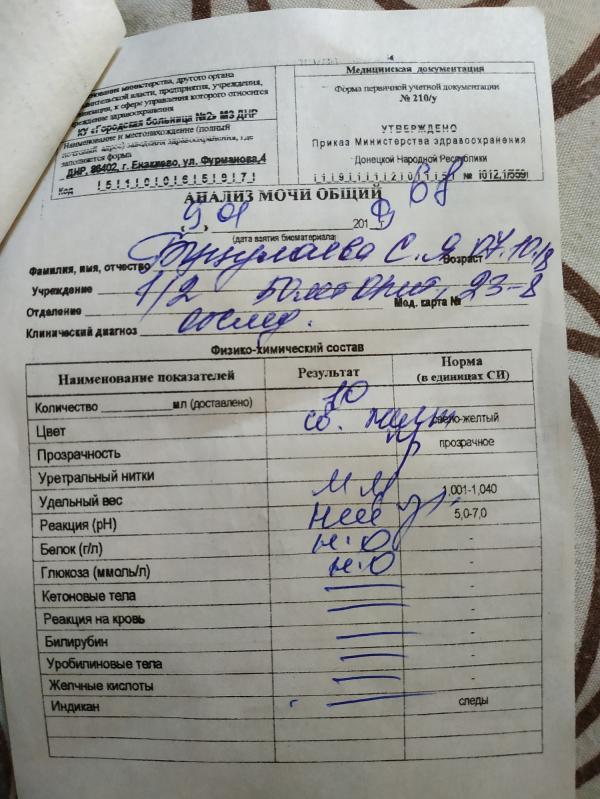 Наименование министерства, другого органа
исполнительской власти, предприятия, учреждения,
организации, к сфере управления которого относится
учреждение здравоохранения
КУ «Городская больница №2» МЗ ДНР
Наименование и местонахождение (полный
почтовый адрес) заведения здравоохранения, где
заполняется форма
ДНР, 86402, г. Енакиево, ул. Фурманова,4
Код
Медицинская документация
Форма первичной учетной документации
№ 210/у
УТВЕРЖДЕНО
Приказ Министерства здравоохранения
Донецкой Народной Республики
№ 012.1/559
АНАЛИЗ МОЧИ ОБЩИЙ 68
9 01 2019
(дата взятия биоматериала)
Фамилия, имя, отчество С. Я Возраст 07.10.18
Учреждение 1/2
Отделение Мед. карта № 23-8
Клинический диагноз обслед.
Физико-химический состав
Наименование показателей Результат Норма
(в единицах СИ)
Количество мл (доставлено) 10
Цвет св. желт светло-желтый
Прозрачность пр прозрачное
Уретральный нитки
Удельный вес М М 1,001-1,040
Реакция (pH) 5,0-7,0
Белок (г/л) Н.О -
Глюкоза (ммоль/л) Н.О -
Кетоновые тела -
Реакция на кровь -
Билирубин -
Уробилиновые тела -
Желчные кислоты -
Индикан следы